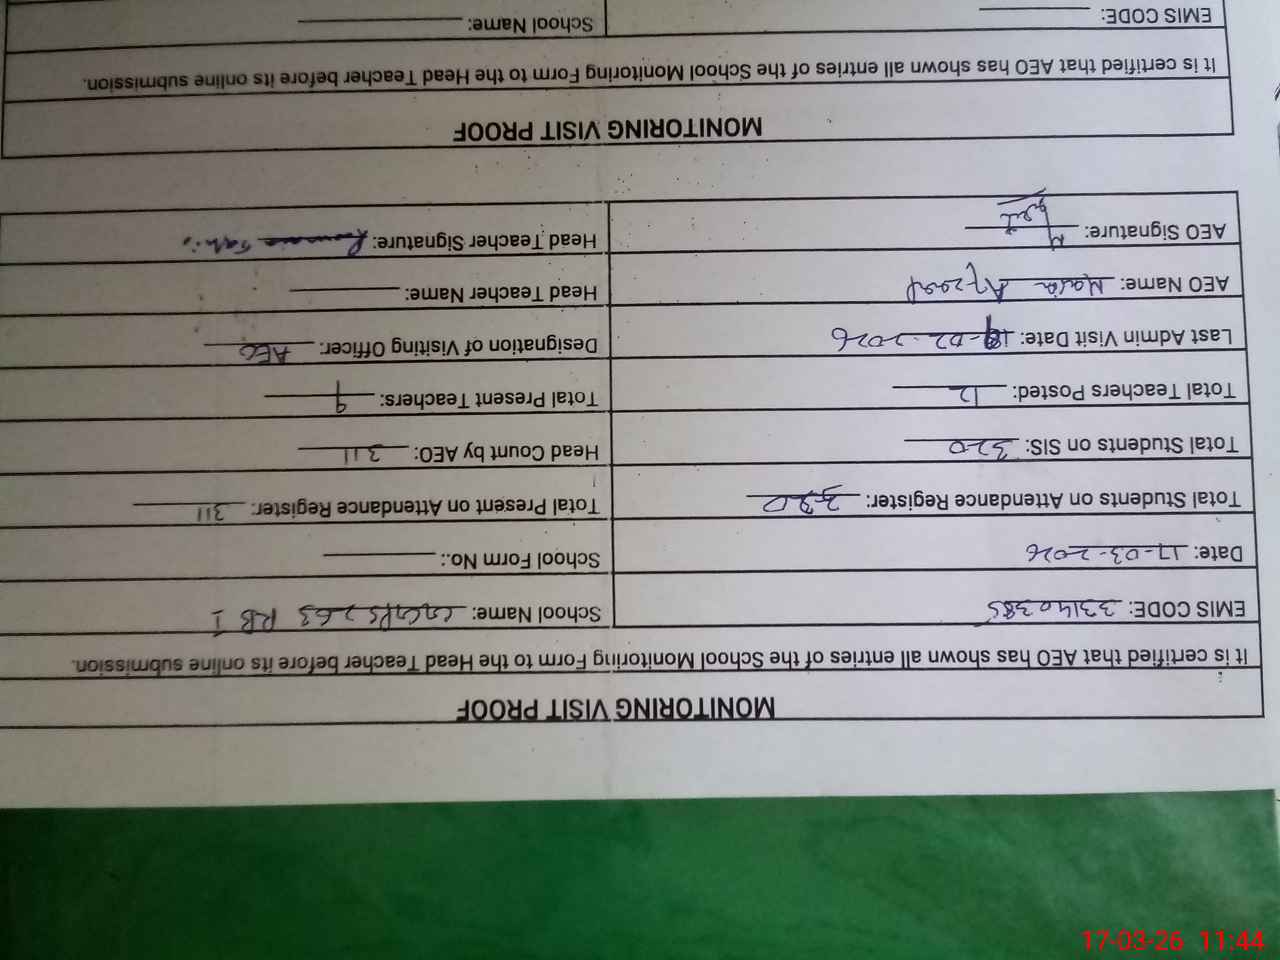 MONITORING VISIT PROOF
It is certified that AEO has shown all entries of the School Monitoring Form to the Head Teacher before its online submission.
EMIS CODE: 33140385 School Name: GGPS 263 RB I
Date: 17-03-2026 School Form No.:
Total Students on Attendance Register: 320 Total Present on Attendance Register: 311
Total Students on SIS: 320 Head Count by AEO: 311
Total Teachers Posted: 12 Total Present Teachers: 9
Last Admin Visit Date: 19-02-2026 Designation of Visiting Officer: AEO
AEO Name: Maria Head Teacher Name:
AEO Signature: Head Teacher Signature:
MONITORING VISIT PROOF
It is certified that AEO has shown all entries of the School Monitoring Form to the Head Teacher before its online submission.
EMIS CODE: School Name:
17-03-26 11:44